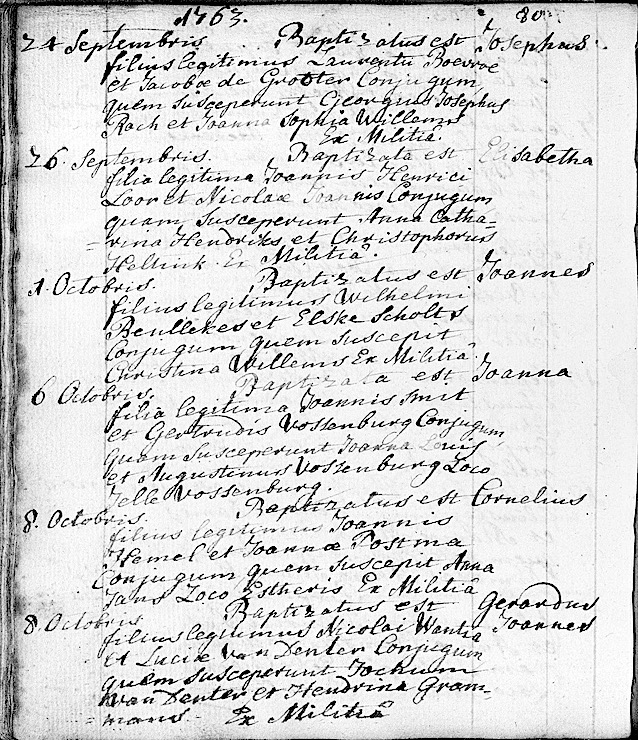 1763. 80
24 Septembris. Baptizatus est Josephus
filius legitimus Laurentii Boevroé
et Jacobæ de Grotter Conjugum,
quem susceperunt Georgius Josephus
Rach et Joanna Sophia Willems
Ex Militiâ.
26. Septembris. Baptizata est Elisabetha
filia legitima Joannis Henrici
Loor et Nicolaæ Joannis Conjugum
quam susceperunt Anna Catha-
=rina Hendriks et Christophorus
Heltink. Ex Militiâ.
1. Octobris. Baptizatus est Joannes
filius legitimus Wilhelmi
Beullekes et Elske Scholts
Conjugum quem suscepit
Christina Willems Ex Militiâ
6 Octobris. Baptizata est Joanna
filia legitima Joannis Smit
et Gertrudis Vossenburg Conjugum,
quam susceperunt Joanna Louis
et Augustinus Vossenburg Loco
Jelle Vossenburg.
8. Octobris. Baptizatus est Cornelius
filius legitimus Joannis
Hemel et Joannæ Postma
Conjugum quem suscepit Anna
Jans Loco Estheris Ex Militiâ
8. Octobris Baptizatus est Gerardus
filius legitimus Nicolai Wantia Joannes
et Luciæ Van Denter Conjugum
quem susceperunt Jochum
Van Denter et Hendrina Gram-
=mans Ex Militiâ